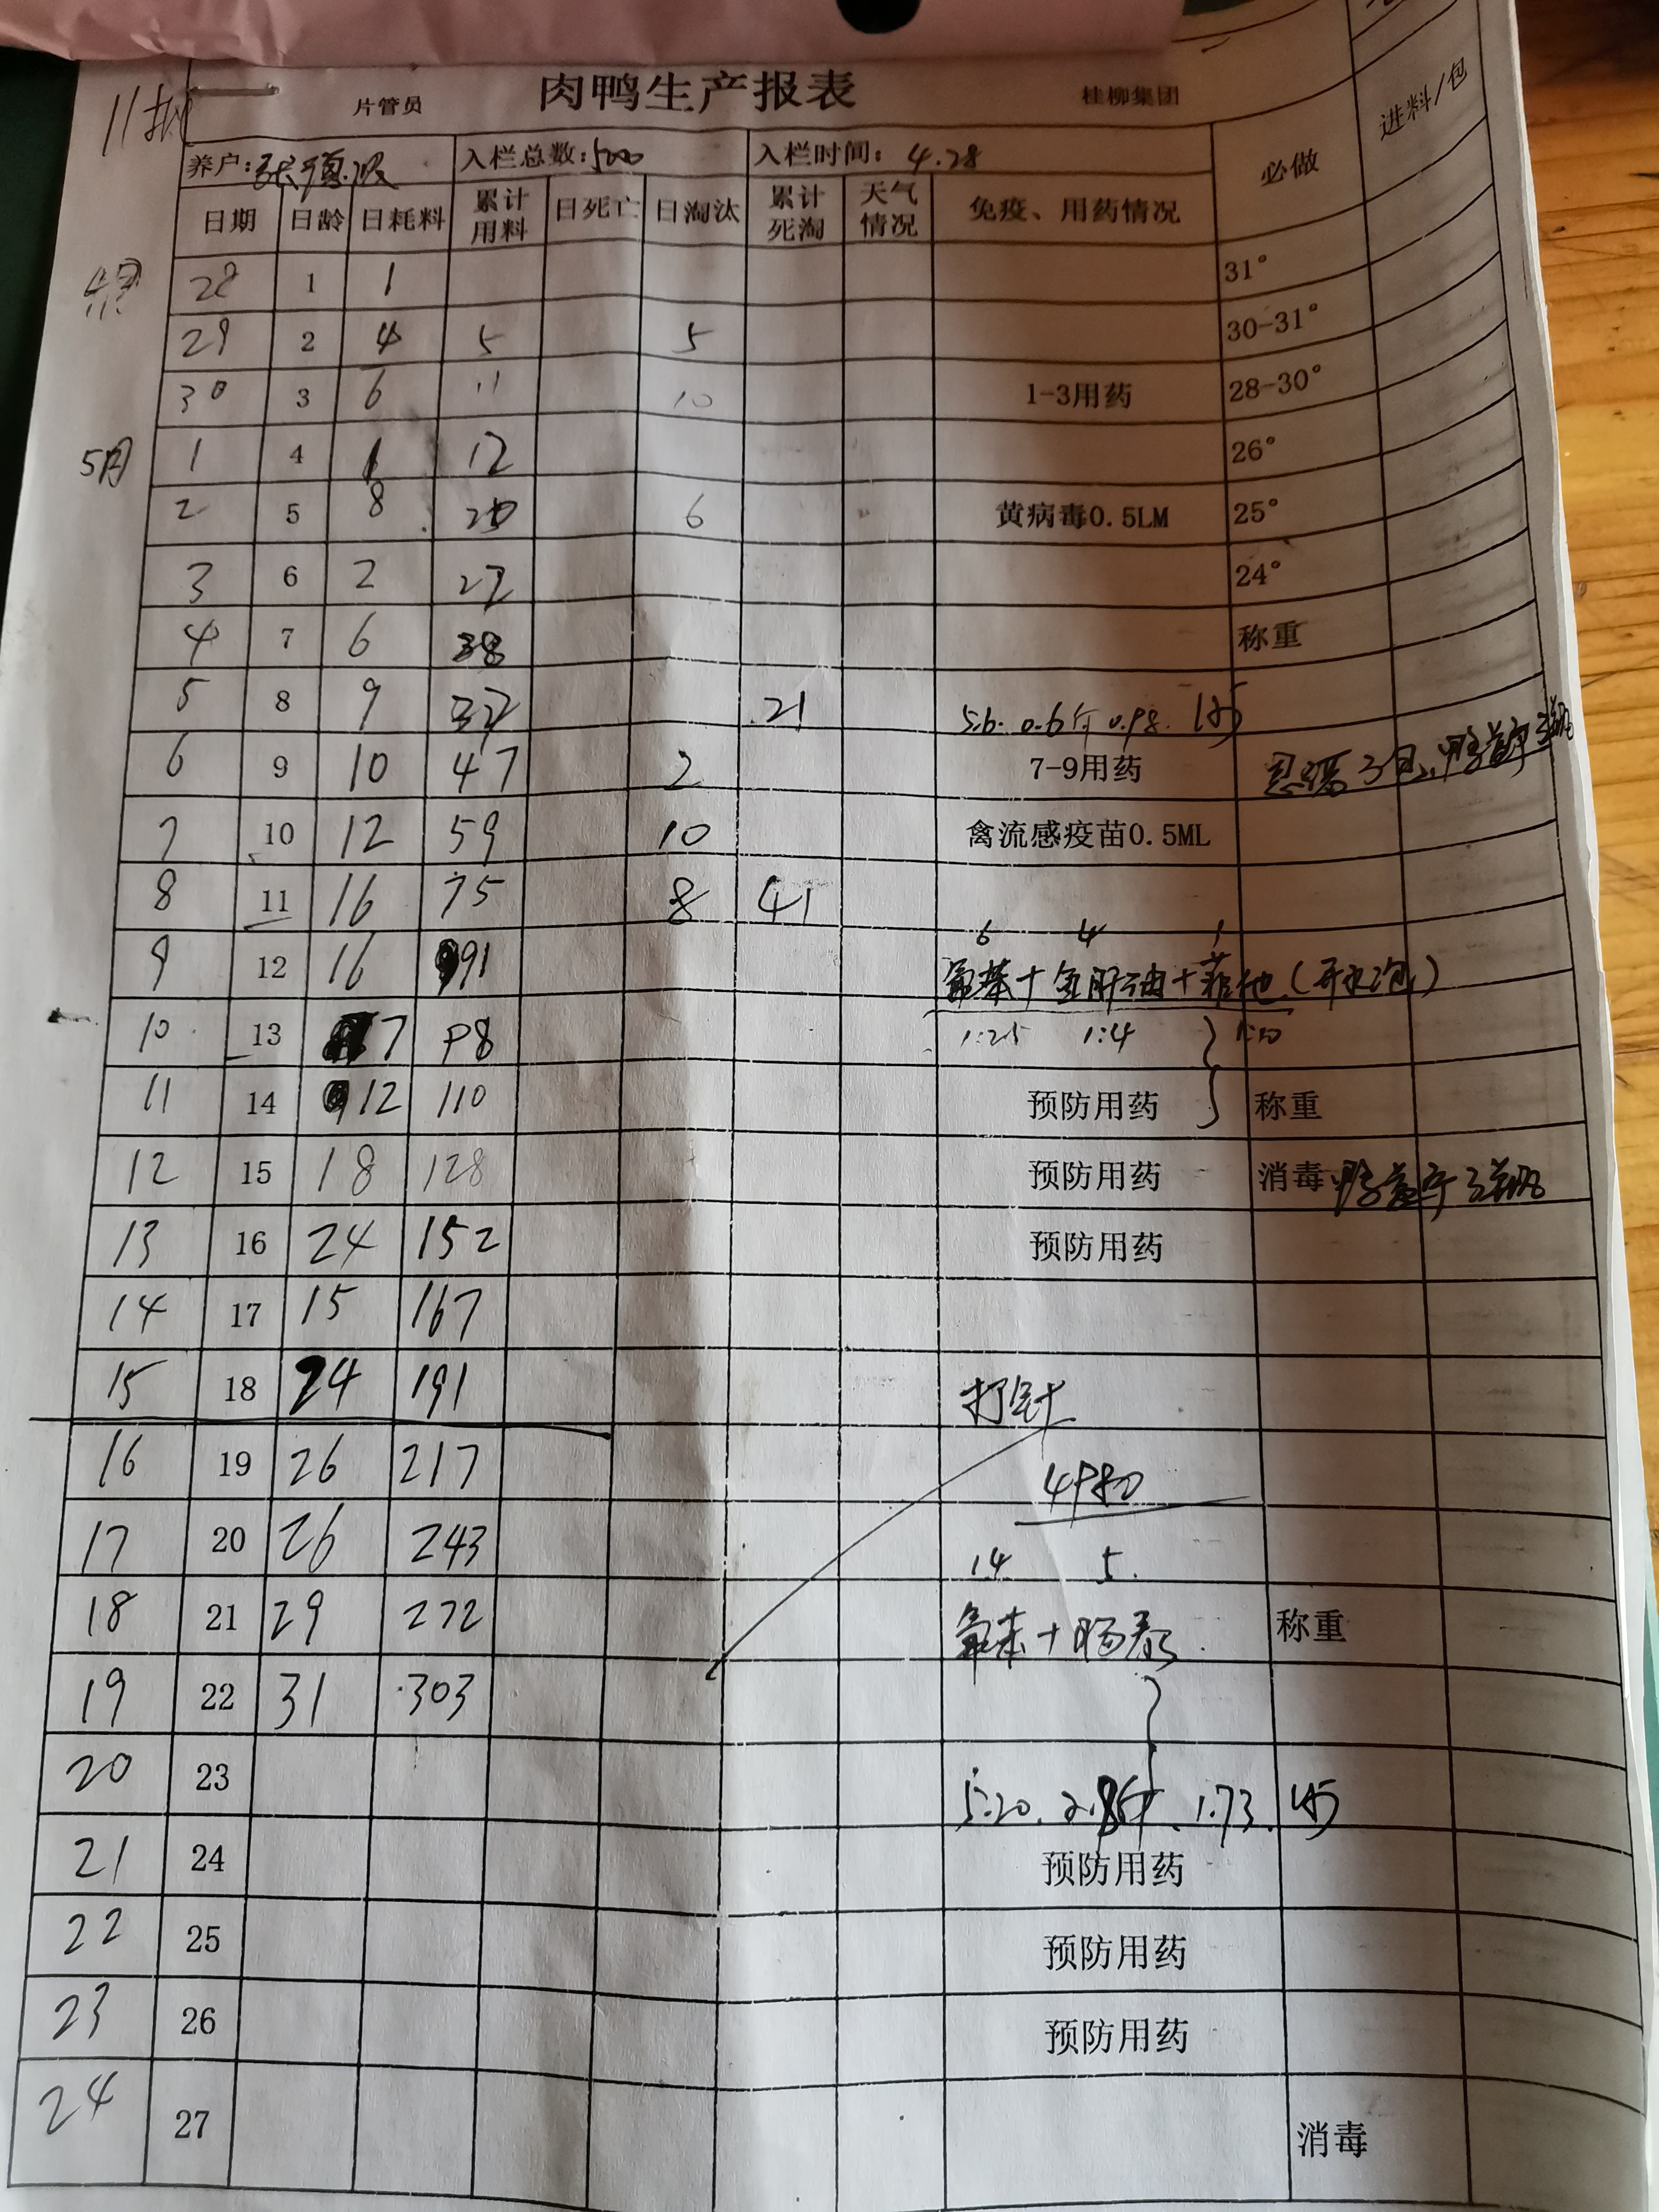 11批
片管员 肉鸭生产报表 桂柳集团
进料/包
养户: 入栏总数:5000 入栏时间: 4.28 必做
日期 日龄 日耗料 累计用料 日死亡 日淘汰 累计死淘 天气情况 免疫、用药情况
4月 28 1 1 31°
29 2 4 5 5 30-31°
30 3 6 11 10 1-3用药 28-30°
5月 1 4 1 12 26°
2 5 8 20 6 黄病毒0.5LM 25°
3 6 2 22 24°
4 7 6 称重
5 8 9 37 21 5.6. 0.6斤 0.98.
6 9 10 47 2 7-9用药 3包
7 10 12 59 10 禽流感疫苗0.5ML
8 11 16 75 8 41
6 4 1
9 12 16 91 氟苯+鱼肝油+ (开水泡)
10 13 7 98 1:25 1:4
11 14 12 110 预防用药 称重
12 15 18 128 预防用药 消毒
13 16 24 152 预防用药
14 17 15 167
15 18 24 191 打针
16 19 26 217 4980
17 20 26 243 14 5.
18 21 29 272 氟苯+肠泰 称重
19 22 31 303
20 23 5.20. 1.73.
21 24 预防用药
22 25 预防用药
23 26 预防用药
24 27 消毒